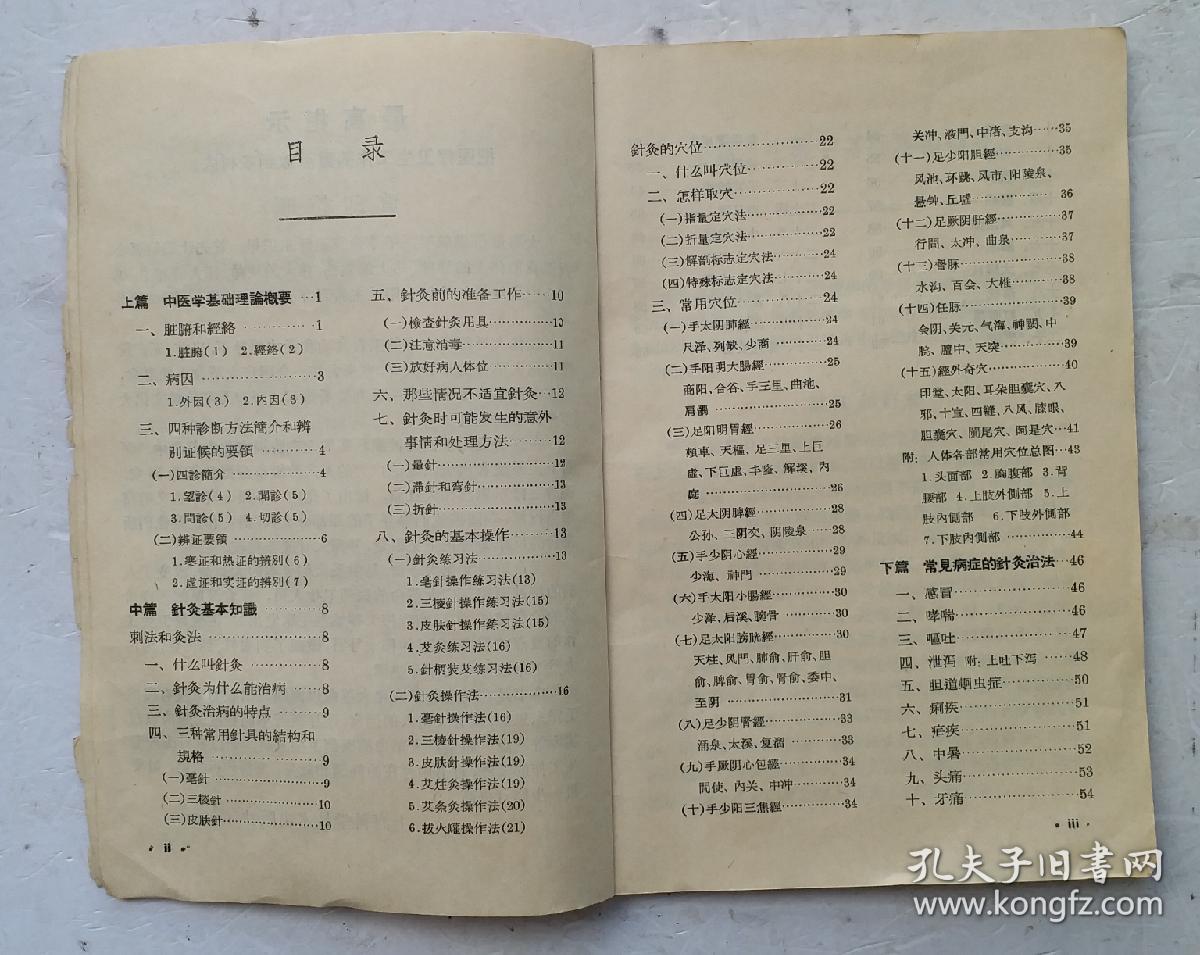 目 录
上篇 中医学基础理論概要…1
一、脏腑和經絡…………1
1.脏腑(1) 2.經絡(2)
二、病因…………3
1.外因(3) 2.内因(3)
三、四种診断方法簡介和辨
別证候的要領…………4
(一)四診簡介…………4
1.望診(4) 2.聞診(5)
3.問診(5) 4.切診(5)
(二)辨证要領…………6
1.寒证和热证的辨別(6)
2.虚证和实证的辨別(7)
中篇 針灸基本知識…………8
刺法和灸法…………8
一、什么叫針灸…………8
二、針灸为什么能治病……8
三、針灸治病的特点………9
四、三种常用針具的結构和
規格…………9
(一)毫針…………9
(二)三稜針…………10
(三)皮肤針…………10
• ii •
五、針灸前的准备工作……10
(一)檢查針灸用具………10
(二)注意消毒…………11
(三)放好病人体位………11
六、那些情况不适宜針灸…12
七、針灸时可能发生的意外
事情和处理方法………12
(一)暈針…………12
(二)滞針和弯針…………13
(三)折針…………13
八、針灸的基本操作………13
(一)針灸练习法…………13
1.毫針操作练习法(13)
2.三稜針操作练习法(15)
3.皮肤針操作练习法(15)
4.艾灸练习法(16)
5.針柄装艾练习法(16)
(二)針灸操作法…………16
1.毫針操作法(16)
2.三稜針操作法(19)
3.皮肤針操作法(19)
4.艾炷灸操作法(19)
5.艾条灸操作法(20)
6.拔火罐操作法(21)
針灸的穴位…………22
一、什么叫穴位…………22
二、怎样取穴…………22
(一)指量定穴法…………22
(二)折量定穴法…………22
(三)解剖标志定穴法……24
(四)特殊标志定穴法……24
三、常用穴位…………24
(一)手太阴肺經…………24
尺泽、列缺、少商………24
(二)手阳明大腸經………25
商阳、合谷、手三里、曲池、
肩髃…………25
(三)足阳明胃經…………26
頰車、天樞、足三里、上巨
虚、下巨虚、丰隆、解溪、内
庭…………26
(四)足太阴脾經…………28
公孙、三阴交、阴陵泉……28
(五)手少阴心經…………29
少海、神門…………29
(六)手太阳小腸經………30
少泽、后溪、腕骨………30
(七)足太阳膀胱經………30
天柱、风門、肺俞、肝俞、胆
俞、脾俞、胃俞、腎俞、委中、
至阴…………31
(八)足少阴腎經…………33
涌泉、太溪、复溜………33
(九)手厥阴心包經………34
間使、内关、中冲………34
(十)手少阳三焦經………34
关冲、液門、中渚、支沟……35
(十一)足少阳胆經………35
风池、环跳、风市、阳陵泉、
悬钟、丘墟…………36
(十二)足厥阴肝經………37
行間、太冲、曲泉………37
(十三)督脉…………38
水沟、百会、大椎………38
(十四)任脉…………39
会阴、关元、气海、神闕、中
脘、膻中、天突…………39
(十五)經外奇穴…………40
印堂、太阳、耳朵胆囊穴、八
邪、十宣、四縫、八风、膝眼、
胆囊穴、闌尾穴、阿是穴…41
附：人体各部常用穴位总图…43
1.头面部 2.胸腹部 3.背
腰部 4.上肢外側部 5.上
肢內側部 6.下肢外側部
7.下肢内側部…………44
下篇 常見病症的針灸治法…46
一、感冒…………46
二、哮喘…………46
三、嘔吐…………47
四、泄泻 附：上吐下泻……48
五、胆道蛔虫症…………50
六、痢疾…………51
七、疟疾…………51
八、中暑…………52
九、头痛…………53
十、牙痛…………54
• iii •
孔夫子旧书网
www.kongfz.com